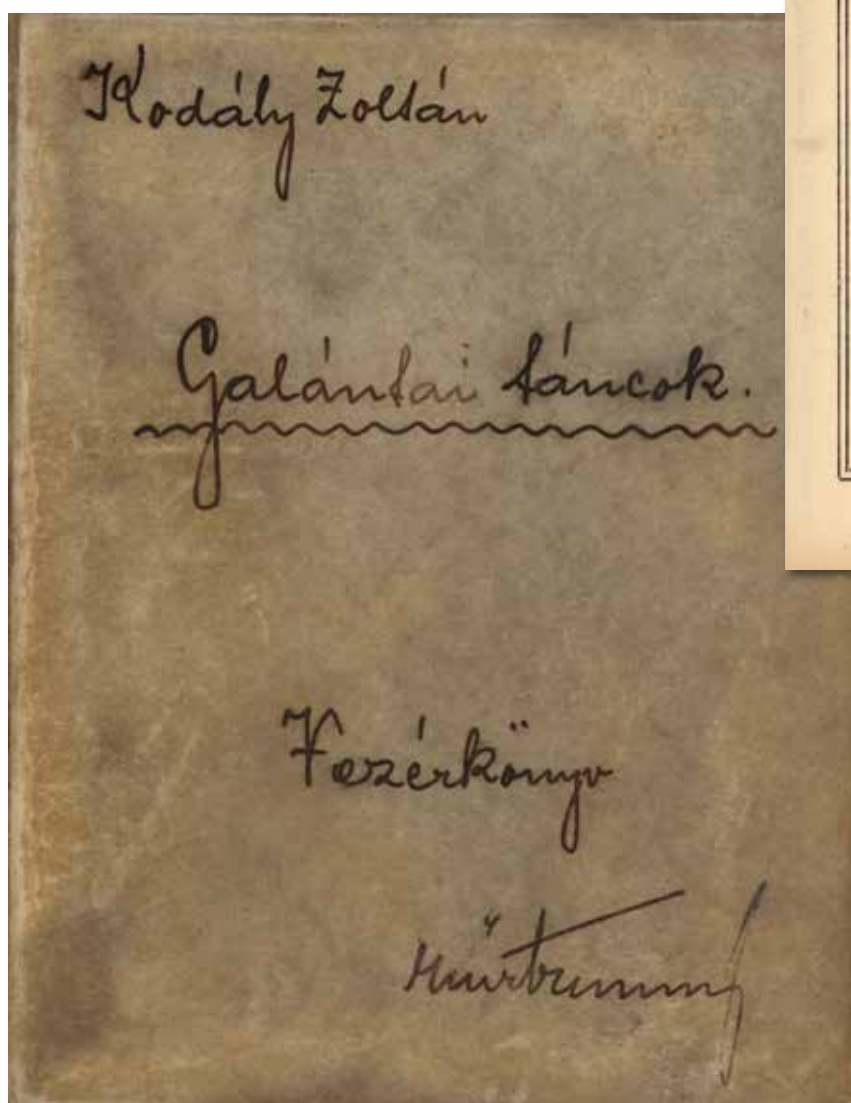 Kodály Zoltán
Galántai táncok.
Vezérkönyv